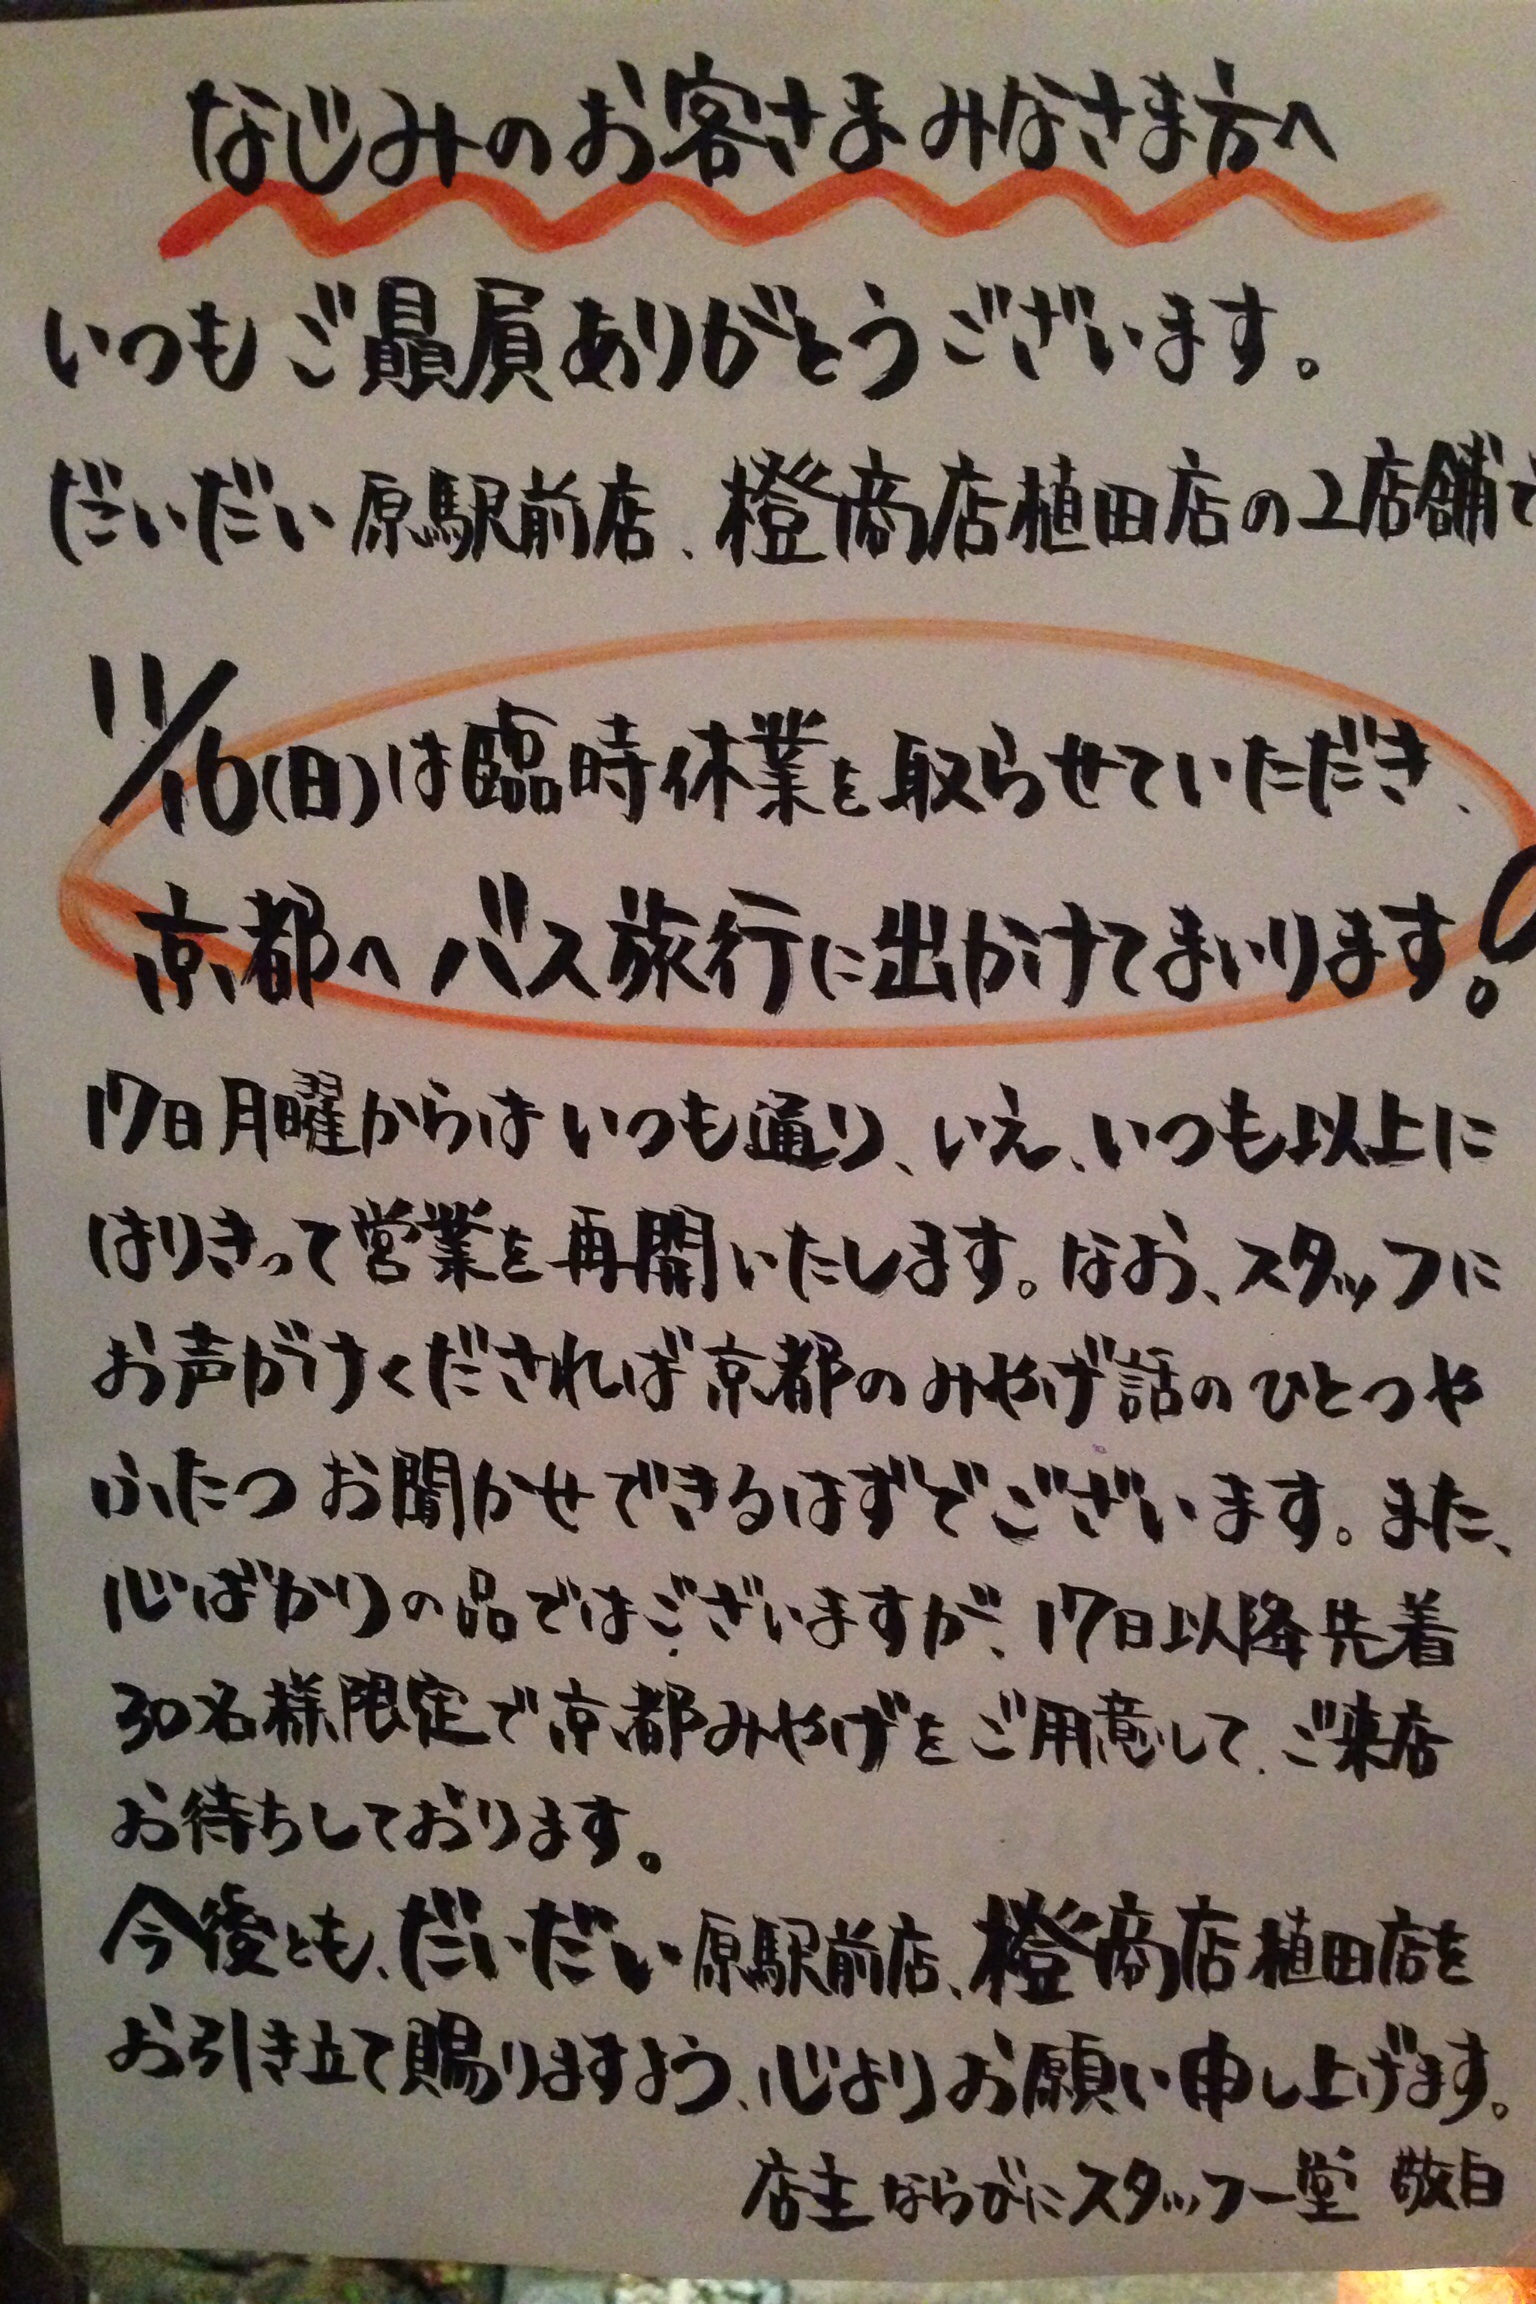 なじみのお客さまみなさま方へ
いつもご贔屓ありがとうございます。
だいだい原駅前店、橙商店植田店の2店舗で
11/16(日)は臨時休業を取らせていただき、
京都へバス旅行に出かけてまいります!
17日月曜からはいつも通り、いえ、いつも以上に
はりきって営業を再開いたします。なお、スタッフに
お声がけくだされば京都のみやげ話のひとつや
ふたつお聞かせできるはずでございます。また、
心ばかりの品ではございますが、17日以降先着
30名様限定で京都みやげをご用意して、ご来店
お待ちしております。
今後とも、だいだい原駅前店、橙商店植田店を
お引き立て賜りますよう、心よりお願い申し上げます。
店主ならびにスタッフ一堂 敬白